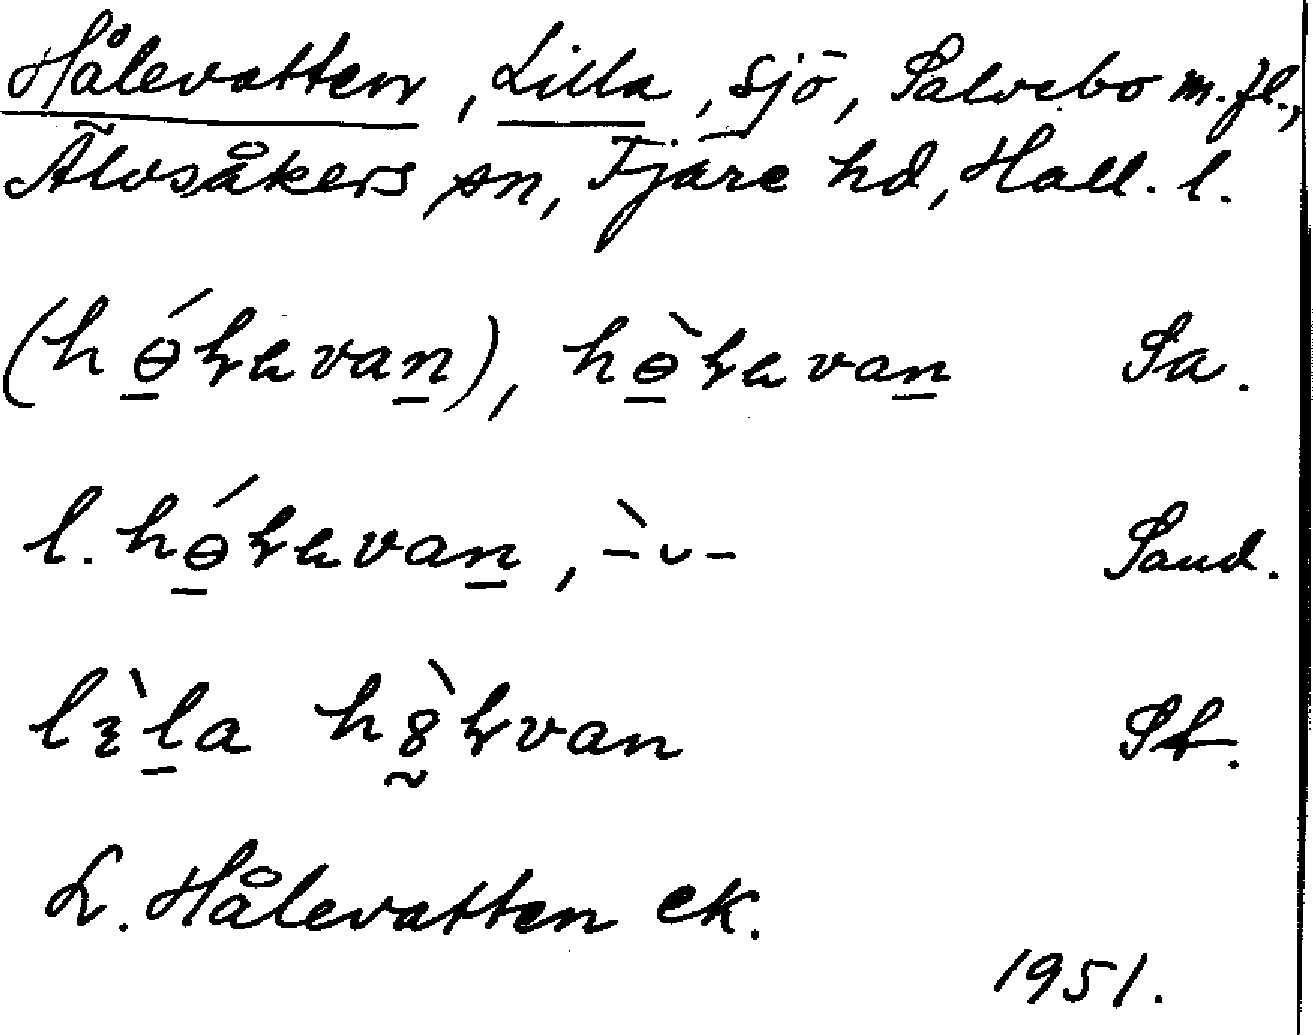 Hålevatten, Lilla, sjö, Salvebo m. fl.,
Älvsåkers sn, Fjäre hd, Hall. l.
(hɵ́ɽavan), hɵ̀ɽavan Sa.
l. hɵ́ɽavan, -̀ ᴗ - Sand.
lìla h8̀ɽvan St.
L. Hålevatten ek.
1951.